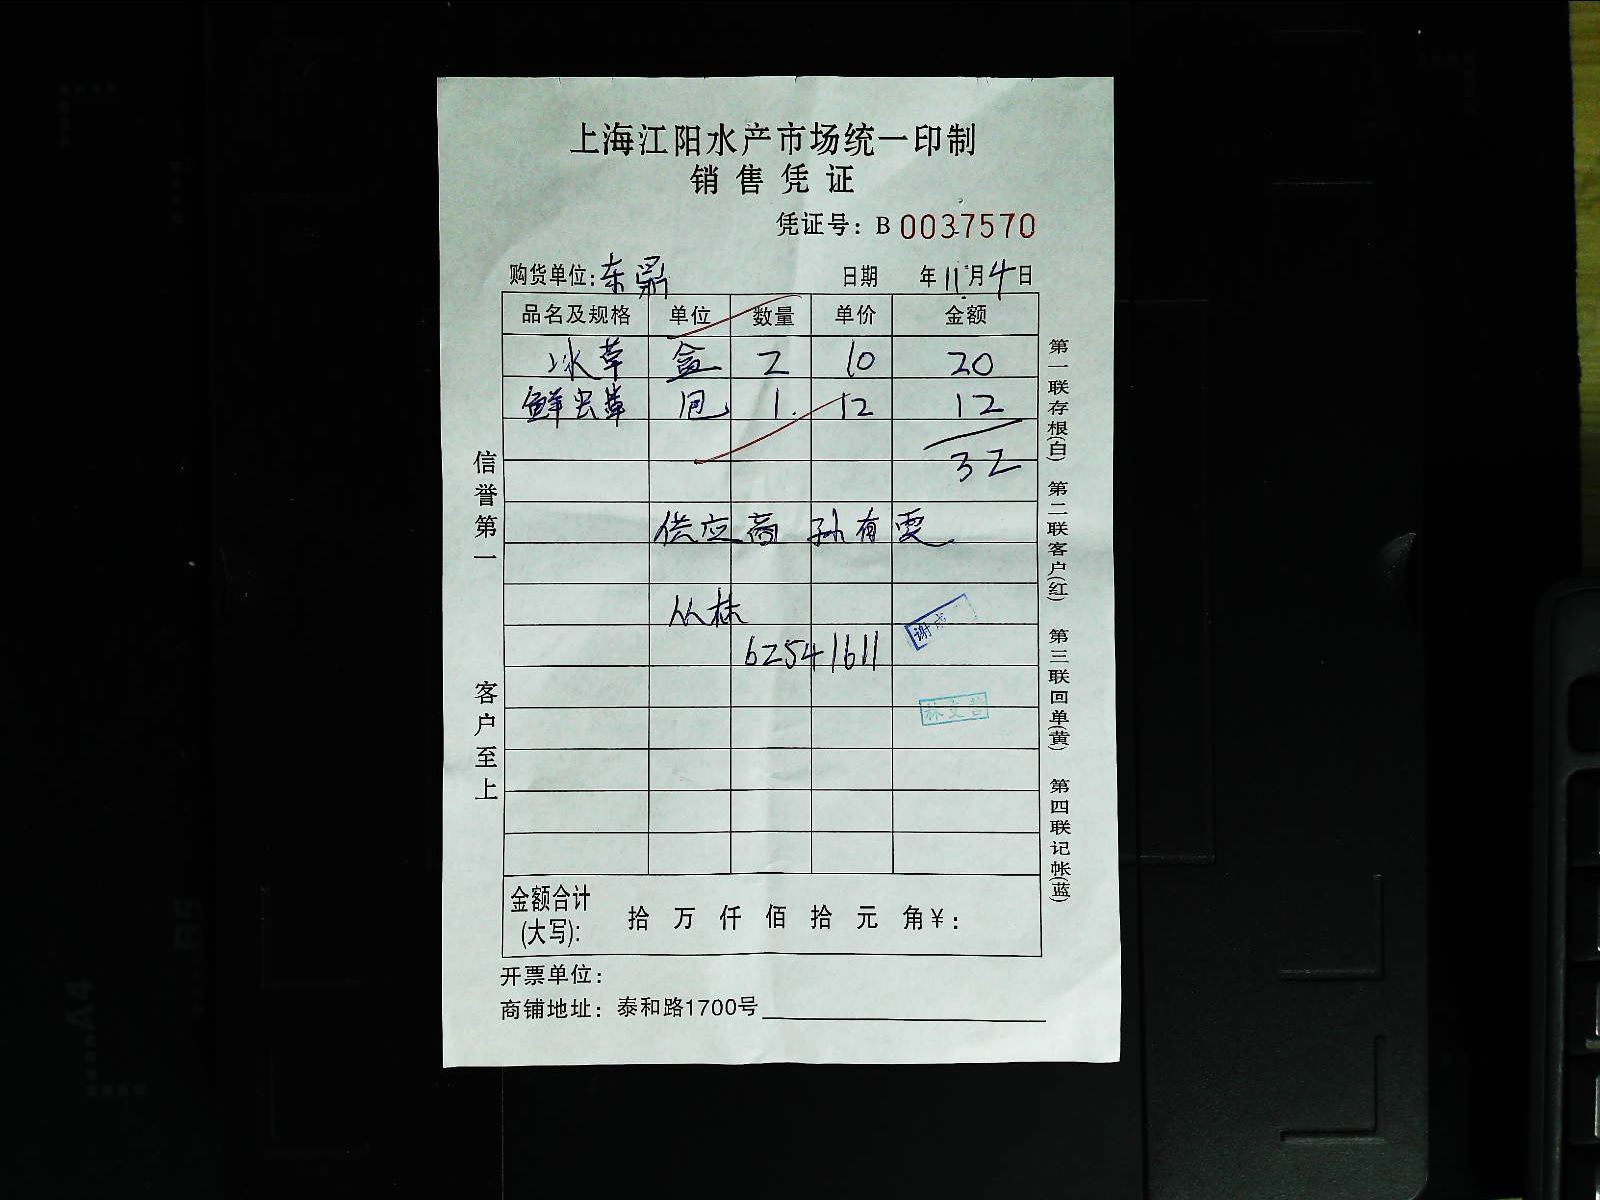 上海江阳水产市场统一印制
销售凭证
凭证号：B 0037570
购货单位：东鼎 日期 年11月4日
品名及规格 单位 数量 单价 金额
冰草 盒 2 10 20
鲜虫草 包 1 12 12
32
供应商 孙有雯
丛林
62541611
谢
林文
信誉第一
客户至上
第一联存根(白) 第二联客户(红) 第三联回单(黄) 第四联记帐(蓝)
金额合计(大写): 拾 万 仟 佰 拾 元 角 ¥:
开票单位：
商铺地址：泰和路1700号
A4
B5